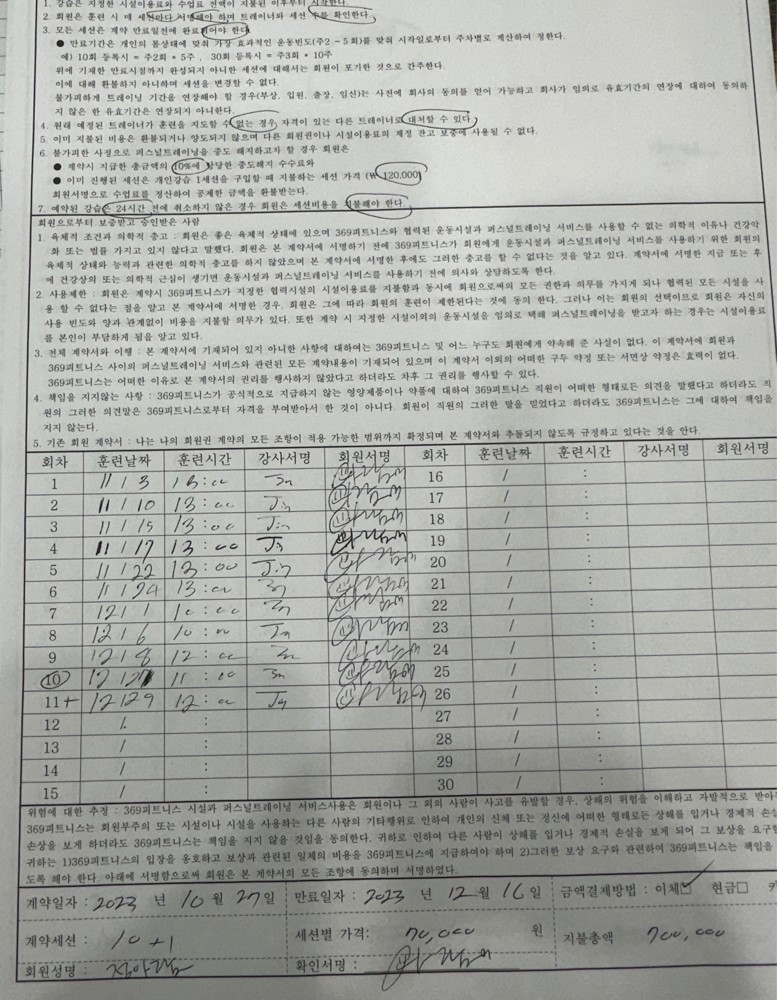 1. 강습은 지정한 시설이용료와 수업료 전액이 지불된 이후부터 시작한다.
2. 회원은 훈련 시 매 세션마다 서명해야 하며 트레이너와 세션 수를 확인한다.
3. 모든 세션은 계약 만료일전에 완료되어야 한다
● 만료기간은 개인의 몸상태에 맞춰 가장 효과적인 운동빈도(주2 - 5회)를 맞춰 시작일로부터 주차별로 계산하여 정한다.
예) 10회 등록시 = 주2회 * 5주 , 30회 등록시 = 주3회 * 10주
위에 기재한 만료시점까지 완성되지 아니한 세션에 대해서는 회원이 포기한 것으로 간주한다.
이에 대해 환불하지 아니하며 세션을 변경할 수 없다.
불가피하게 트레이닝 기간을 연장해야 할 경우(부상, 입원, 출장, 임신)는 사전에 회사의 동의를 얻어 가능하고 회사가 임의로 유효기간의 연장에 대하여 동의하
지 않은 한 유효기간은 연장되지 아니한다.
4. 원래 예정된 트레이너가 훈련을 지도할 수 없는 경우 자격이 있는 다른 트레이너로 대처할 수 있다.
5. 이미 지불된 비용은 환불되거나 양도되지 않으며 다른 회원권이나 시설이용료의 재정 잔고 보충에 사용될 수 없다.
6. 불가피한 사정으로 퍼스널트레이닝을 중도 해지하고자 할 경우 회원은
● 계약시 지급한 총금액의 10%에 해당한 중도해지 수수료와
● 이미 진행된 세션은 개인강습 1세션을 구입할 때 지불하는 세션 가격 (₩ 120,000)
회원서명으로 수업료를 정산하여 공제한 금액을 환불받는다.
7. 예약된 강습은 24시간 전에 취소하지 않은 경우 회원은 세션비용을 지불해야 한다.
회원으로부터 보증받고 승인받은 사람
1. 육체적 조건과 의학적 충고 : 회원은 좋은 육체적 상태에 있으며 369피트니스와 협력된 운동시설과 퍼스널트레이닝 서비스를 사용할 수 없는 의학적 이유나 건강악
화 또는 법률 가지고 있지 않다고 말했다. 회원은 본 계약서에 서명하기 전에 369피트니스가 회원에게 운동시설과 퍼스널트레이닝 서비스를 사용하기 위한 회원의
육체적 상태와 능력과 관련한 의학적 충고를 하지 않았으며 본 계약서에 서명한 후에도 그러한 충고를 할 수 없다는 것을 알고 있다. 계약서에 서명한 지금 또는 후
에 건강상의 또는 의학적 근심이 생기면 운동시설과 퍼스널트레이닝 서비스를 사용하기 전에 의사와 상담하도록 한다.
2. 사용제한 : 회원은 계약시 369피트니스가 지정한 협력시설의 시설이용료를 지불함과 동시에 회원으로써의 모든 권한과 의무를 가지게 되나 협력된 모든 시설을 사
용 할 수 없다는 점을 알고 본 계약서에 서명한 경우, 회원은 그에 따라 회원의 훈련이 제한된다는 것에 동의 한다. 그러나 이는 회원의 선택이므로 회원은 자신의
사용 빈도와 양과 관계없이 비용을 지불할 의무가 있다. 또한 계약 시 지정한 시설이외의 운동시설을 임의로 택해 퍼스널트레이닝을 받고자 하는 경우는 시설이용료
를 본인이 부담하게 됨을 알고 있다.
3. 전체 계약서와 이행 : 본 계약서에 기재되어 있지 아니한 사항에 대하여는 369피트니스 및 어느 누구도 회원에게 약속해 준 사실이 없다. 이 계약서에 회원과
369피트니스 사이의 퍼스널트레이닝 서비스와 관련된 모든 계약내용이 기재되어 있으며 이 계약서 이외의 어떠한 구두 약정 또는 서면상 약정은 효력이 없다.
369피트니스는 어떠한 이유로 본 계약서의 권리를 행사하지 않았다고 하더라도 차후 그 권리를 행사할 수 있다.
4. 책임을 지지않는 사항 : 369피트니스가 공식적으로 지급하지 않는 영양제품이나 약품에 대하여 369피트니스 직원이 어떠한 형태로든 의견을 말했다고 하더라도 직
원의 그러한 의견말은 369피트니스로부터 자격을 부여받아서 한 것이 아니다. 회원이 직원의 그러한 말을 믿었다고 하더라도 369피트니스는 그에 대하여 책임을
지지 않는다.
5. 기존 회원 계약서 : 나는 나의 회원권 계약의 모든 조항이 적용 가능한 범위까지 확정되며 본 계약서와 추돌되지 않도록 규정하고 있다는 것을 안다.
회차 훈련날짜 훈련시간 강사서명 회원서명 회차 훈련날짜 훈련시간 강사서명 회원서명
1 11 / 3 13:00 Jn 16 / :
2 11 / 10 13:00 Jin 17 / :
3 11 / 15 13:00 Jin 18 / :
4 11 / 17 13:00 Jn 19 / :
5 11 / 22 13:00 Jin 20 / :
6 11 / 24 13:00 21 / :
7 12 / 1 10:00 22 / :
8 12 / 6 10:00 Jn 23 / :
9 12 / 8 12:00 24 / :
10 12 / 27 11:00 Jn 25 / :
11+ 12 / 29 12:00 Jn 26 / :
12 / : 27 / :
13 / : 28 / :
14 / : 29 / :
15 / : 30 / :
위험에 대한 추정 : 369피트니스 시설과 퍼스널트레이닝 서비스사용은 회원이나 그 외의 사람이 사고를 유발할 경우, 상해의 위험을 이해하고 자발적으로 받아
369피트니스는 회원부주의 또는 시설이나 시설을 사용하는 다른 사람의 기타행위로 인하여 개인의 신체 또는 정신에 어떠한 형태로든 상해를 입거나 경제적 손실
손상을 보게 하더라도 369피트니스는 책임을 지지 않을 것임을 동의한다. 귀하로 인하여 다른 사람이 상해를 입거나 경제적 손실을 보게 되어 그 보상을 요구할
귀하는 1)369피트니스의 입장을 옹호하고 보상과 관련된 일체의 비용을 369피트니스에 지급하여야 하며 2)그러한 보상 요구와 관련하여 369피트니스는 책임을
도록 해야 한다. 아래에 서명함으로써 회원은 본 계약서의 모든 조항에 동의하며 서명하였다.
계약일자 : 2023 년 10 월 27 일 만료일자 : 2023 년 12 월 16 일 금액결제방법 : 이체☑ 현금□ 카
계약세션 : 10+1 세션별 가격: 70,000 원 지불총액 700,000
회원성명 : 확인서명 :